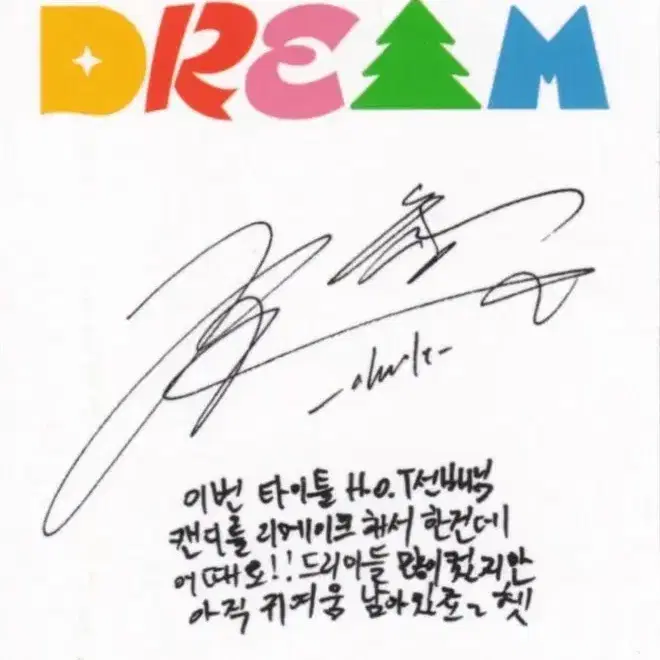 DREAM
이번 타이틀 H.O.T선배님
캔디를 리메이크 해서 한건데
어때요!! 드리아들 많이컸지만
아직 귀여움 남아와죠 헷